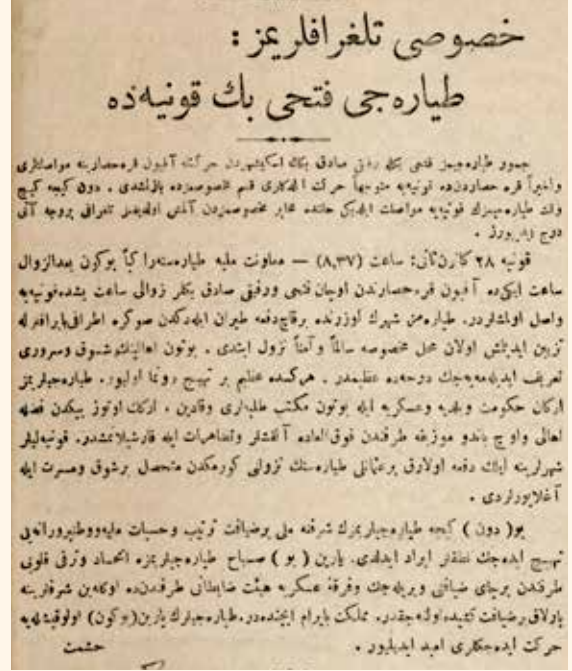 خصوصی تلغرافلریمز :
طیاره‌جی فتحی بك قونیه‌ده
جسور طیاره‌جیمز فتحی بكله رفیقی صادق بكك اسكیشهردن حركتله آفیون قره‌حصارینه مواصلتلری
واخیراً قره حصاردن‌ده قونیه‌یه متوجهاً حركت ایلدكلری قسم مخصوصمزده یازلمشدی . دون كیجه كیچ
وقت طیاره‌جیمزك قونیه‌یه مواصلت ایلدیكی حقنده مخابر مخصوصمزدن آلمش اولدیغمز تلغرافی بروجه آتی
درج ایدییورز .
قونیه ۲۸ كانون‌ثانی : ساعت (۸,۳۷) — معاونت ملیه طیاره‌سنه راكباً بوكون بعدالزوال
ساعت ایكی‌ده آفیون قره‌حصارندن اوچان فتحی ورفیقی صادق بكلر زوالی ساعت بشده قونیه‌یه
واصل اولمشلردر. طیاره‌مز شهرك اوزرنده برقاچ دفعه طیران ایلدكدن صوكره اطرافی بایراقلرله
تزیین ایدلمش اولان محل مخصوصه سالماً وآمناً نزول ایتدی . بوتون اهالینك شوق وسروری
تعریف ایدیله‌میه‌جك درجه‌ده عظیمدر . هركسده عظیم بر تهییج رونما اولیور. طیاره‌جیلریمز
اركان حكومت وبلدیه وعسكریه ایله بوتون مكتب طلبه‌لری وقادین ، اركك اوتوز بیكدن فضله
اهالی واوچ باندو موزیقه طرفندن فوق‌العاده آلقشلر وتظاهرات ایله قارشیلانمشدر. قونیه‌لیلر
شهرلرینه ایلك دفعه اولارق برعثمانلی طیاره‌سنك نزولنی كورمكدن متحصل برشوق ومسرت ایله
آغلایورلردی .
بو ( دون ) كیجه طیاره‌جیلریمزك شرفنه ملی برضیافت ترتیب وحسیات ملیه ووطنپرورانه‌یی
تهییج ایده‌جك نطقلر ایراد ایدلدی. یارین ( بو ) صباح طیاره‌جیلریمزه اتحاد وترقی قلوبی
طرفندن برچای ضیافتی ویریله‌جك وفرقهٔ عسكریه هیئت ضابطانی طرفندن‌ده اوكله‌ین شرفلرینه
پارلاق برضیافت كشیده اوله‌جقدر. مملكت بایرام ایچنده‌در. طیاره‌جیلرك یارین (بوكون) اولوقیشله‌یه
حركت ایده‌جكلری امید ایدیلیور . حشمت